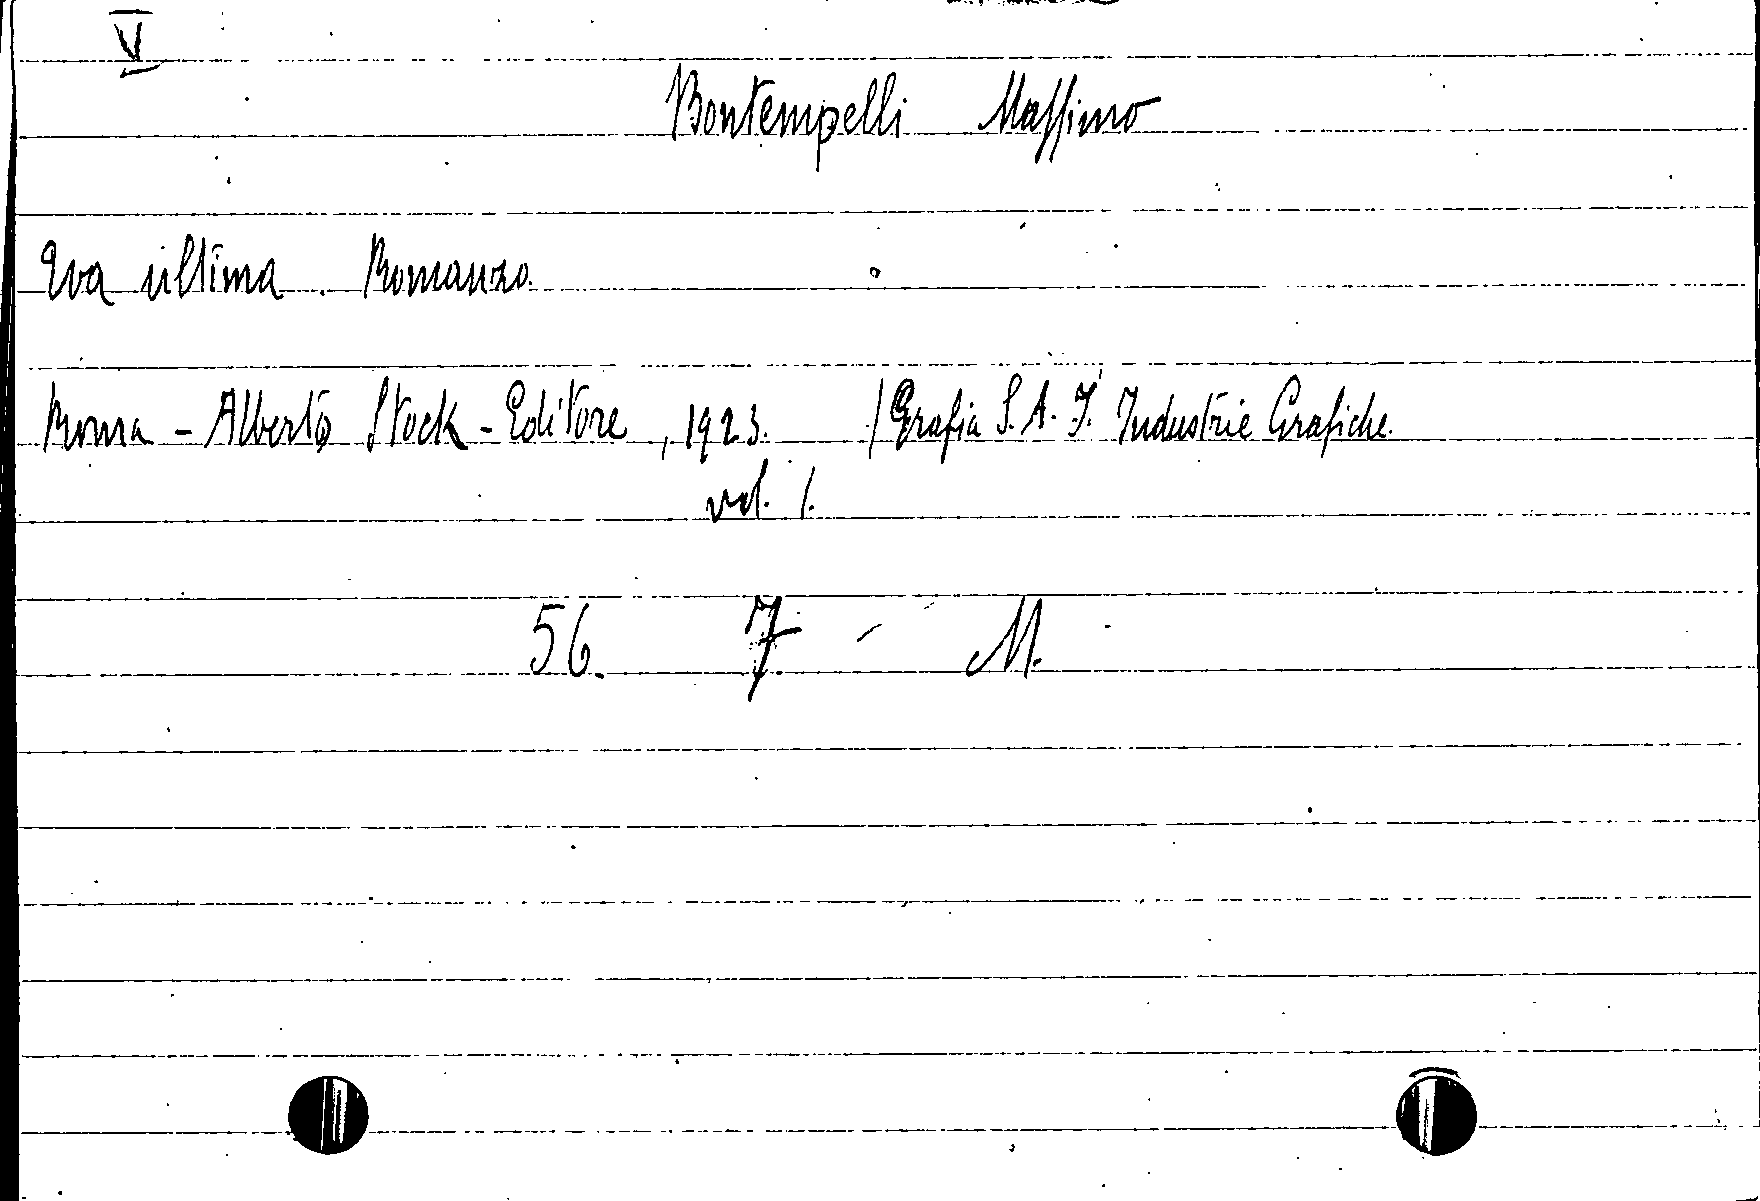 V
Bontempelli Massimo
Eva ultima. Romanzo.
Roma - Alberto Stock - Editore, 1923. / Grafia S. A. I. Industrie Grafiche.
vol. 1.
56. 7 - M.